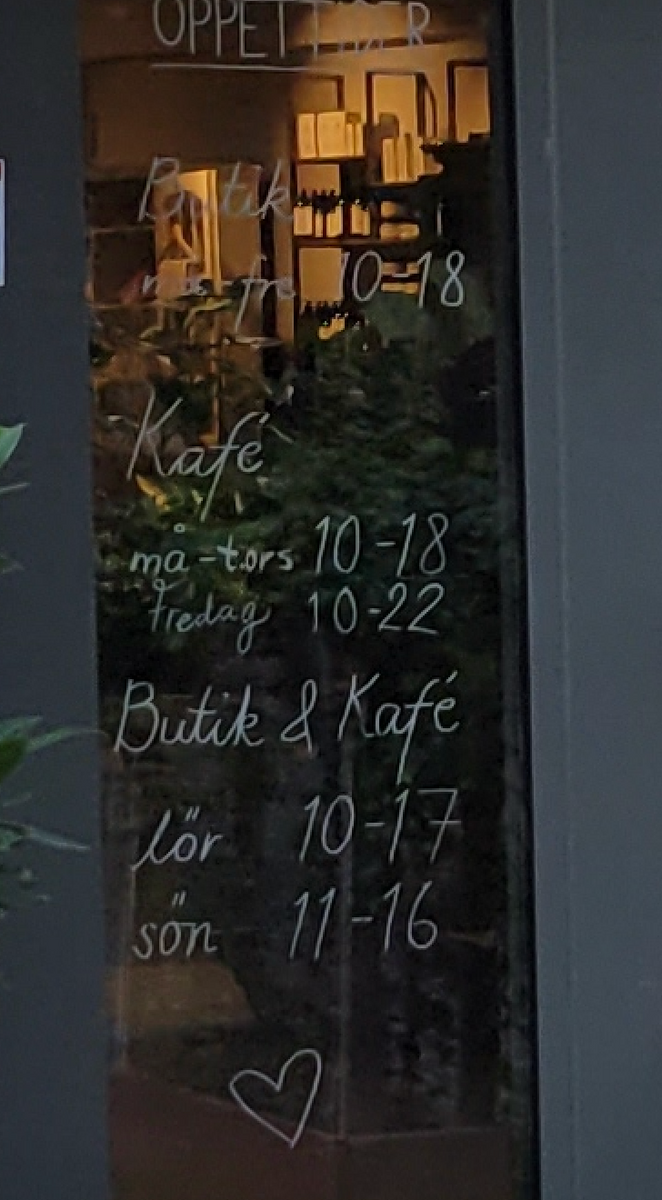 ÖPPETTIDER
Butik
må-fre 10-18
Kafé
må-tors 10-18
fredag 10-22
Butik & Kafé
lör 10-17
sön 11-16